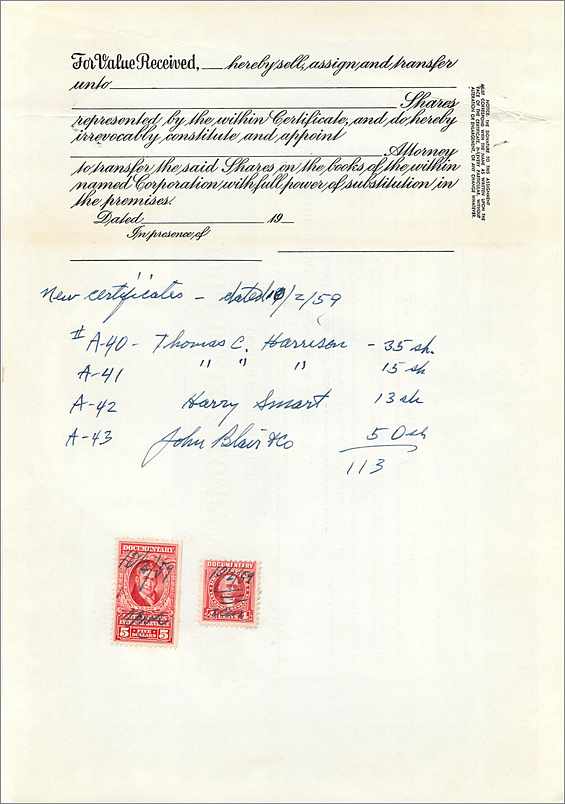 For Value Received, ___ hereby sell, assign and transfer
unto
Shares
represented by the within Certificate, and do hereby
irrevocably constitute and appoint
Attorney
to transfer the said Shares on the books of the within
named Corporation with full power of substitution in
the premises.
Dated 19
In presence of
NOTICE: THE SIGNATURE TO THIS ASSIGNMENT
MUST CORRESPOND WITH THE NAME AS WRITTEN UPON THE
FACE OF THE CERTIFICATE, IN EVERY PARTICULAR, WITHOUT
ALTERATION OR ENLARGEMENT, OR ANY CHANGE WHATEVER.
New certificates - dated 10/2/59
# A-40 - Thomas C. Harrison - 35 sh.
A-41 " " " 15 sh
A-42 Harry Smart 13 sh
A-43 John Blair & Co 50 sh
113
DOCUMENTARY
5 FIVE DOLLARS 5
DOCUMENTARY